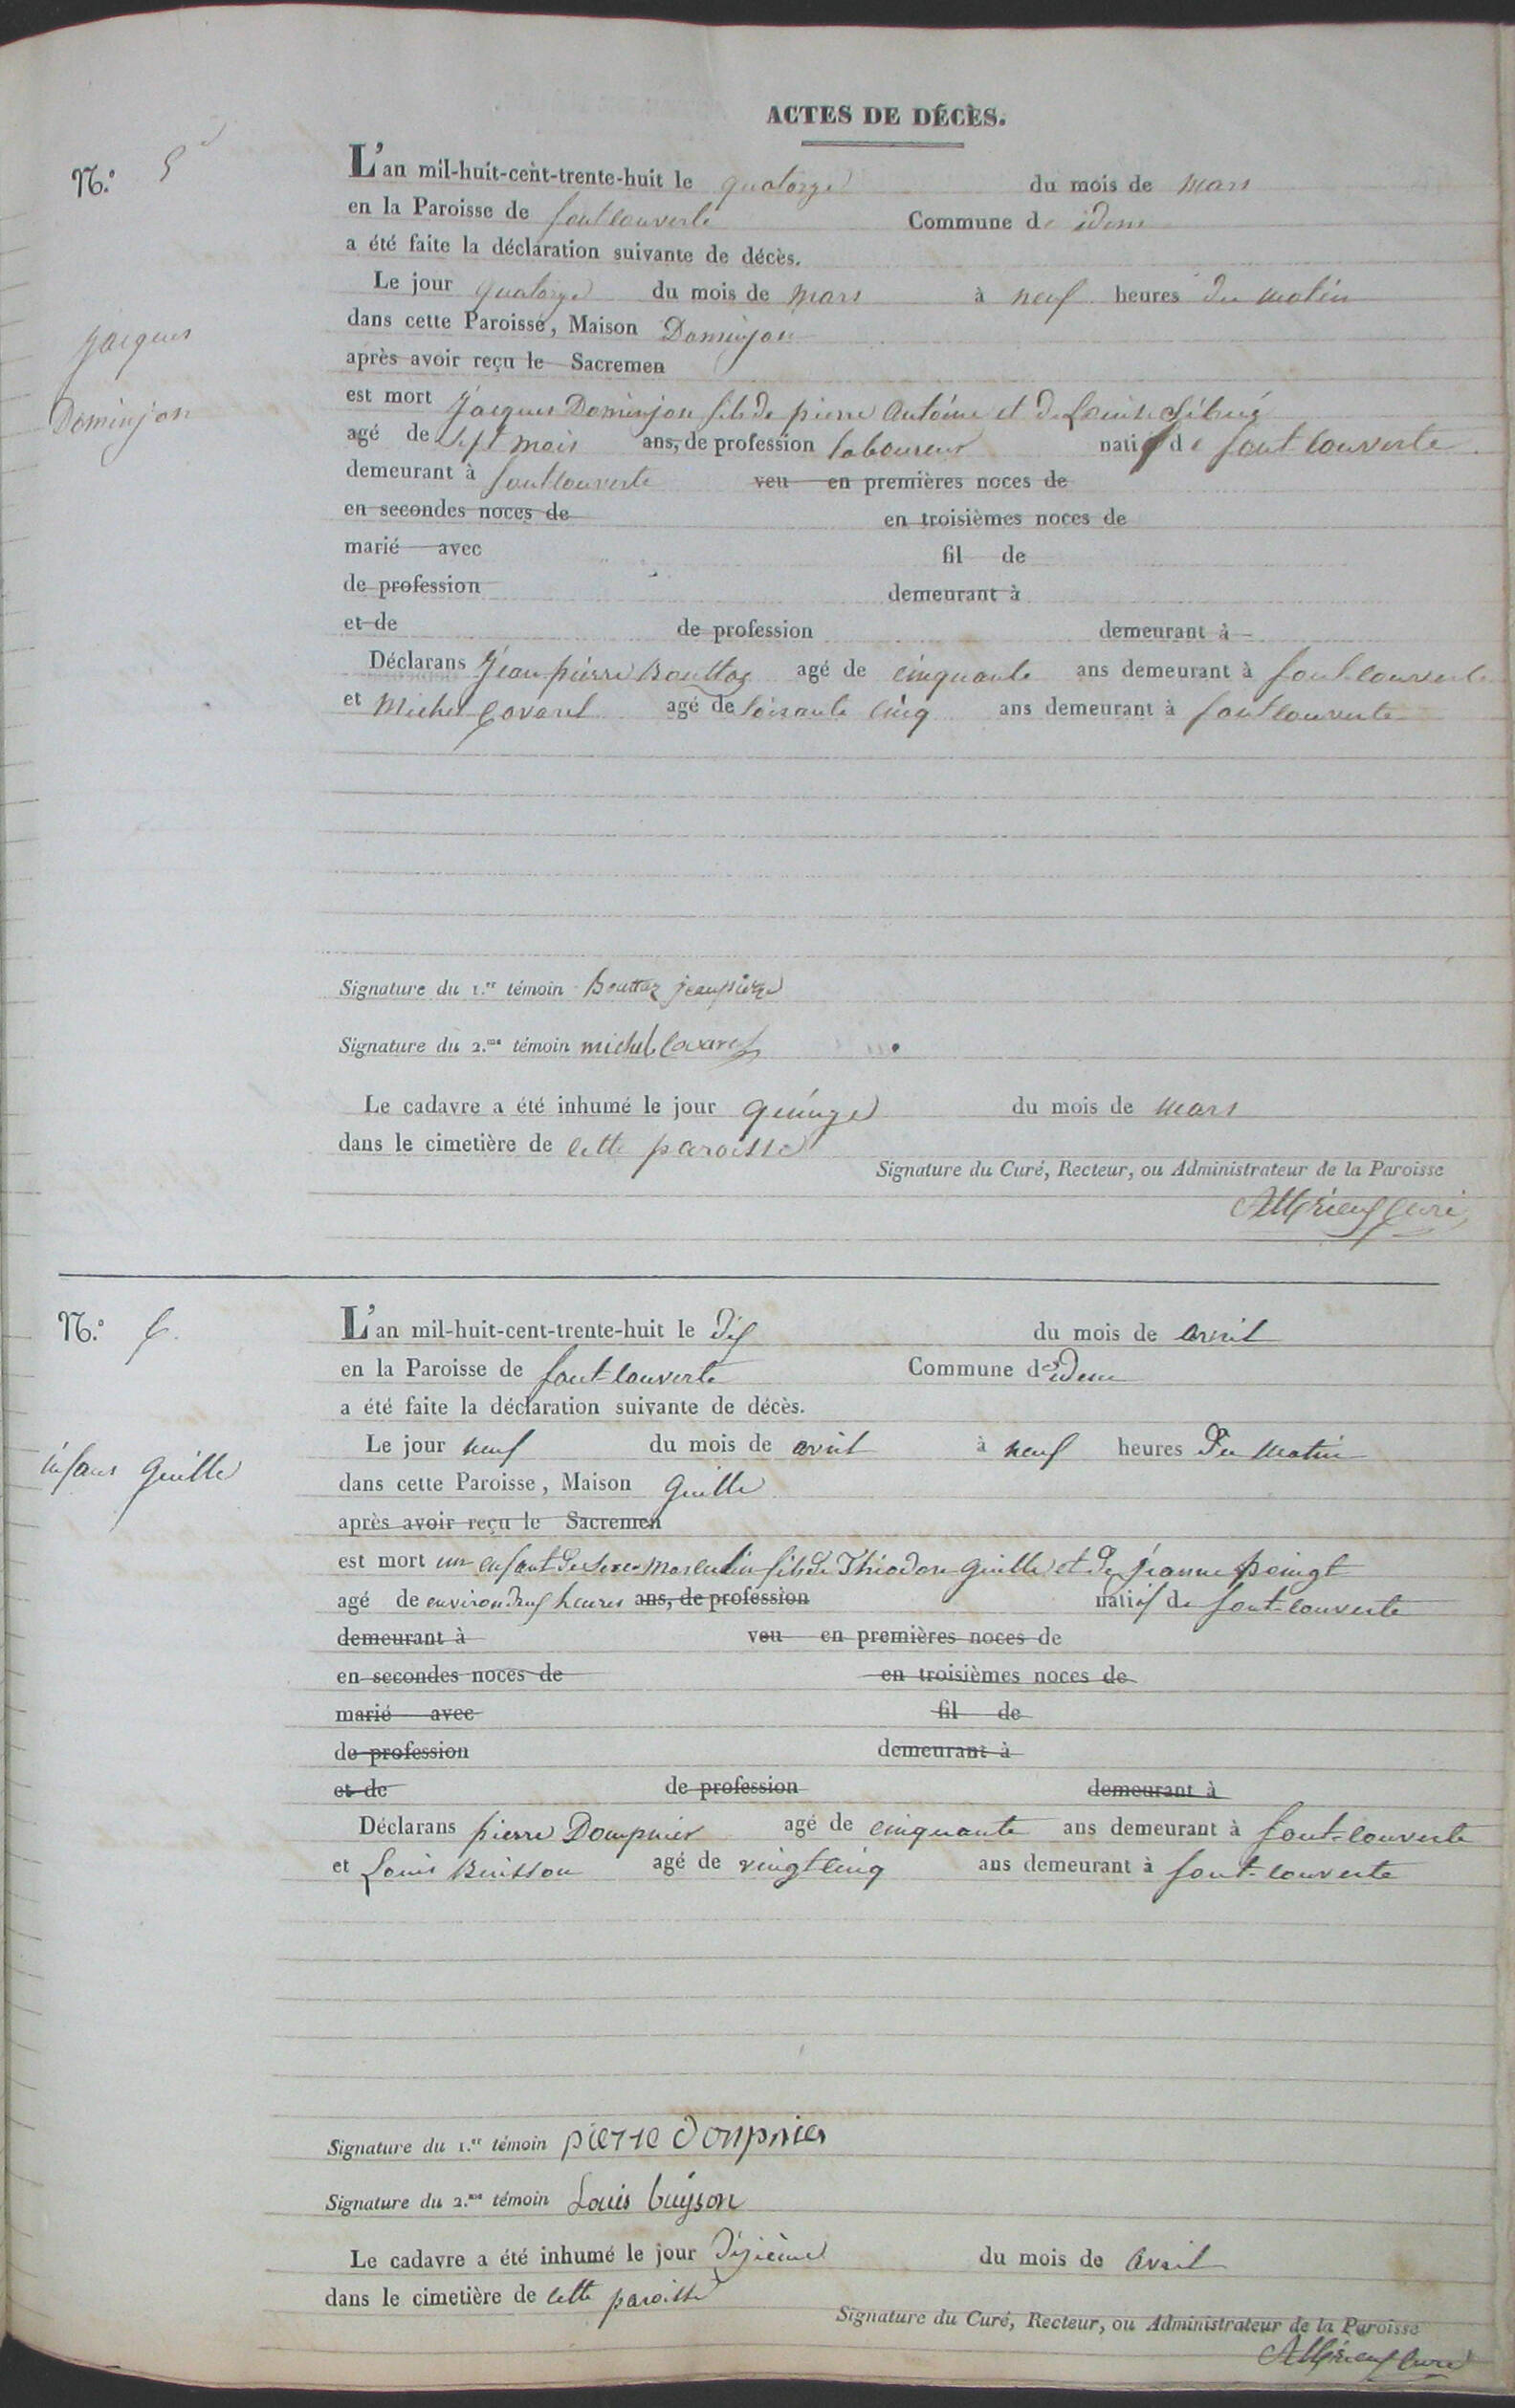 ACTES DE DÉCÈS.
N.º 5
L'an mil-huit-cent-trente-huit le quatorze du mois de mars
en la Paroisse de fontcouverte Commune de idem
a été faite la déclaration suivante de décès.
Le jour quatorze du mois de mars à neuf heures du matin
dans cette Paroisse, Maison Dominjon
après avoir reçu le Sacremen
Jacques
Dominjon
est mort Jacques Dominjon fils de pierre Antoine et de Louise
agé de sept mois ans, de profession laboureur natif de font couverte
demeurant à fontcouverte veu en premières noces de
en secondes noces de en troisièmes noces de
marié avec fil de
de profession demeurant à
et de de profession demeurant à
Déclarans Jean pierre Bouttaz agé de cinquante ans demeurant à font couverte
et Michel Covarel agé de soixante cinq ans demeurant à fontcouverte
Signature du 1.er témoin Bouttaz jeanpierre
Signature du 2.me témoin michel Covarel
Le cadavre a été inhumé le jour quinze du mois de mars
dans le cimetière de cette paroisse
Signature du Curé, Recteur, ou Administrateur de la Paroisse
curé
N.º 6.
L'an mil-huit-cent-trente-huit le dix du mois de avril
en la Paroisse de font-couverte Commune d'idem
a été faite la déclaration suivante de décès.
Le jour neuf du mois de avril à neuf heures du matin
infans Guille
dans cette Paroisse, Maison Guille
après avoir reçu le Sacremen
est mort un enfant de sexe masculin fils de Théodore Guille et de jeanne
agé de environ deux heures ans, de profession natif de font-couverte
demeurant à veu en premières noces de
en secondes noces de en troisièmes noces de
marié avec fil de
de profession demeurant à
et de de profession demeurant à
Déclarans pierre Dompnier agé de cinquante ans demeurant à font-couverte
et Louis Buisson agé de vingt cinq ans demeurant à font-couverte
Signature du 1.er témoin pierre dompnier
Signature du 2.me témoin Louis buisson
Le cadavre a été inhumé le jour dixième du mois de avril
dans le cimetière de cette paroisse
Signature du Curé, Recteur, ou Administrateur de la Paroisse
curé